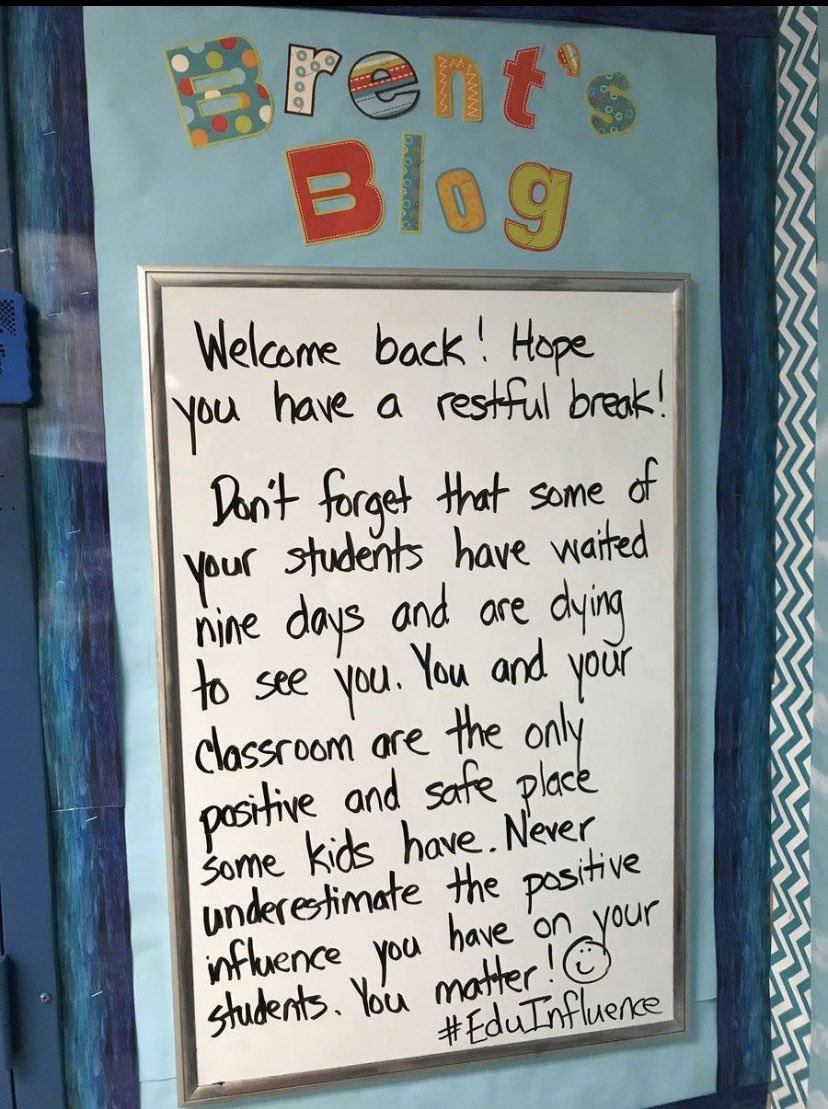 Brent's
Blog
Welcome back! Hope
you have a restful break!
Don't forget that some of
your students have waited
nine days and are dying
to see you. You and your
classroom are the only
positive and safe place
some kids have. Never
underestimate the positive
influence you have on your
students. You matter!
#EduInfluence